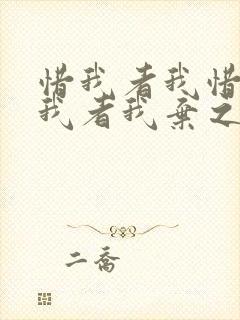 惜我者我惜
我者我弃之
二喬